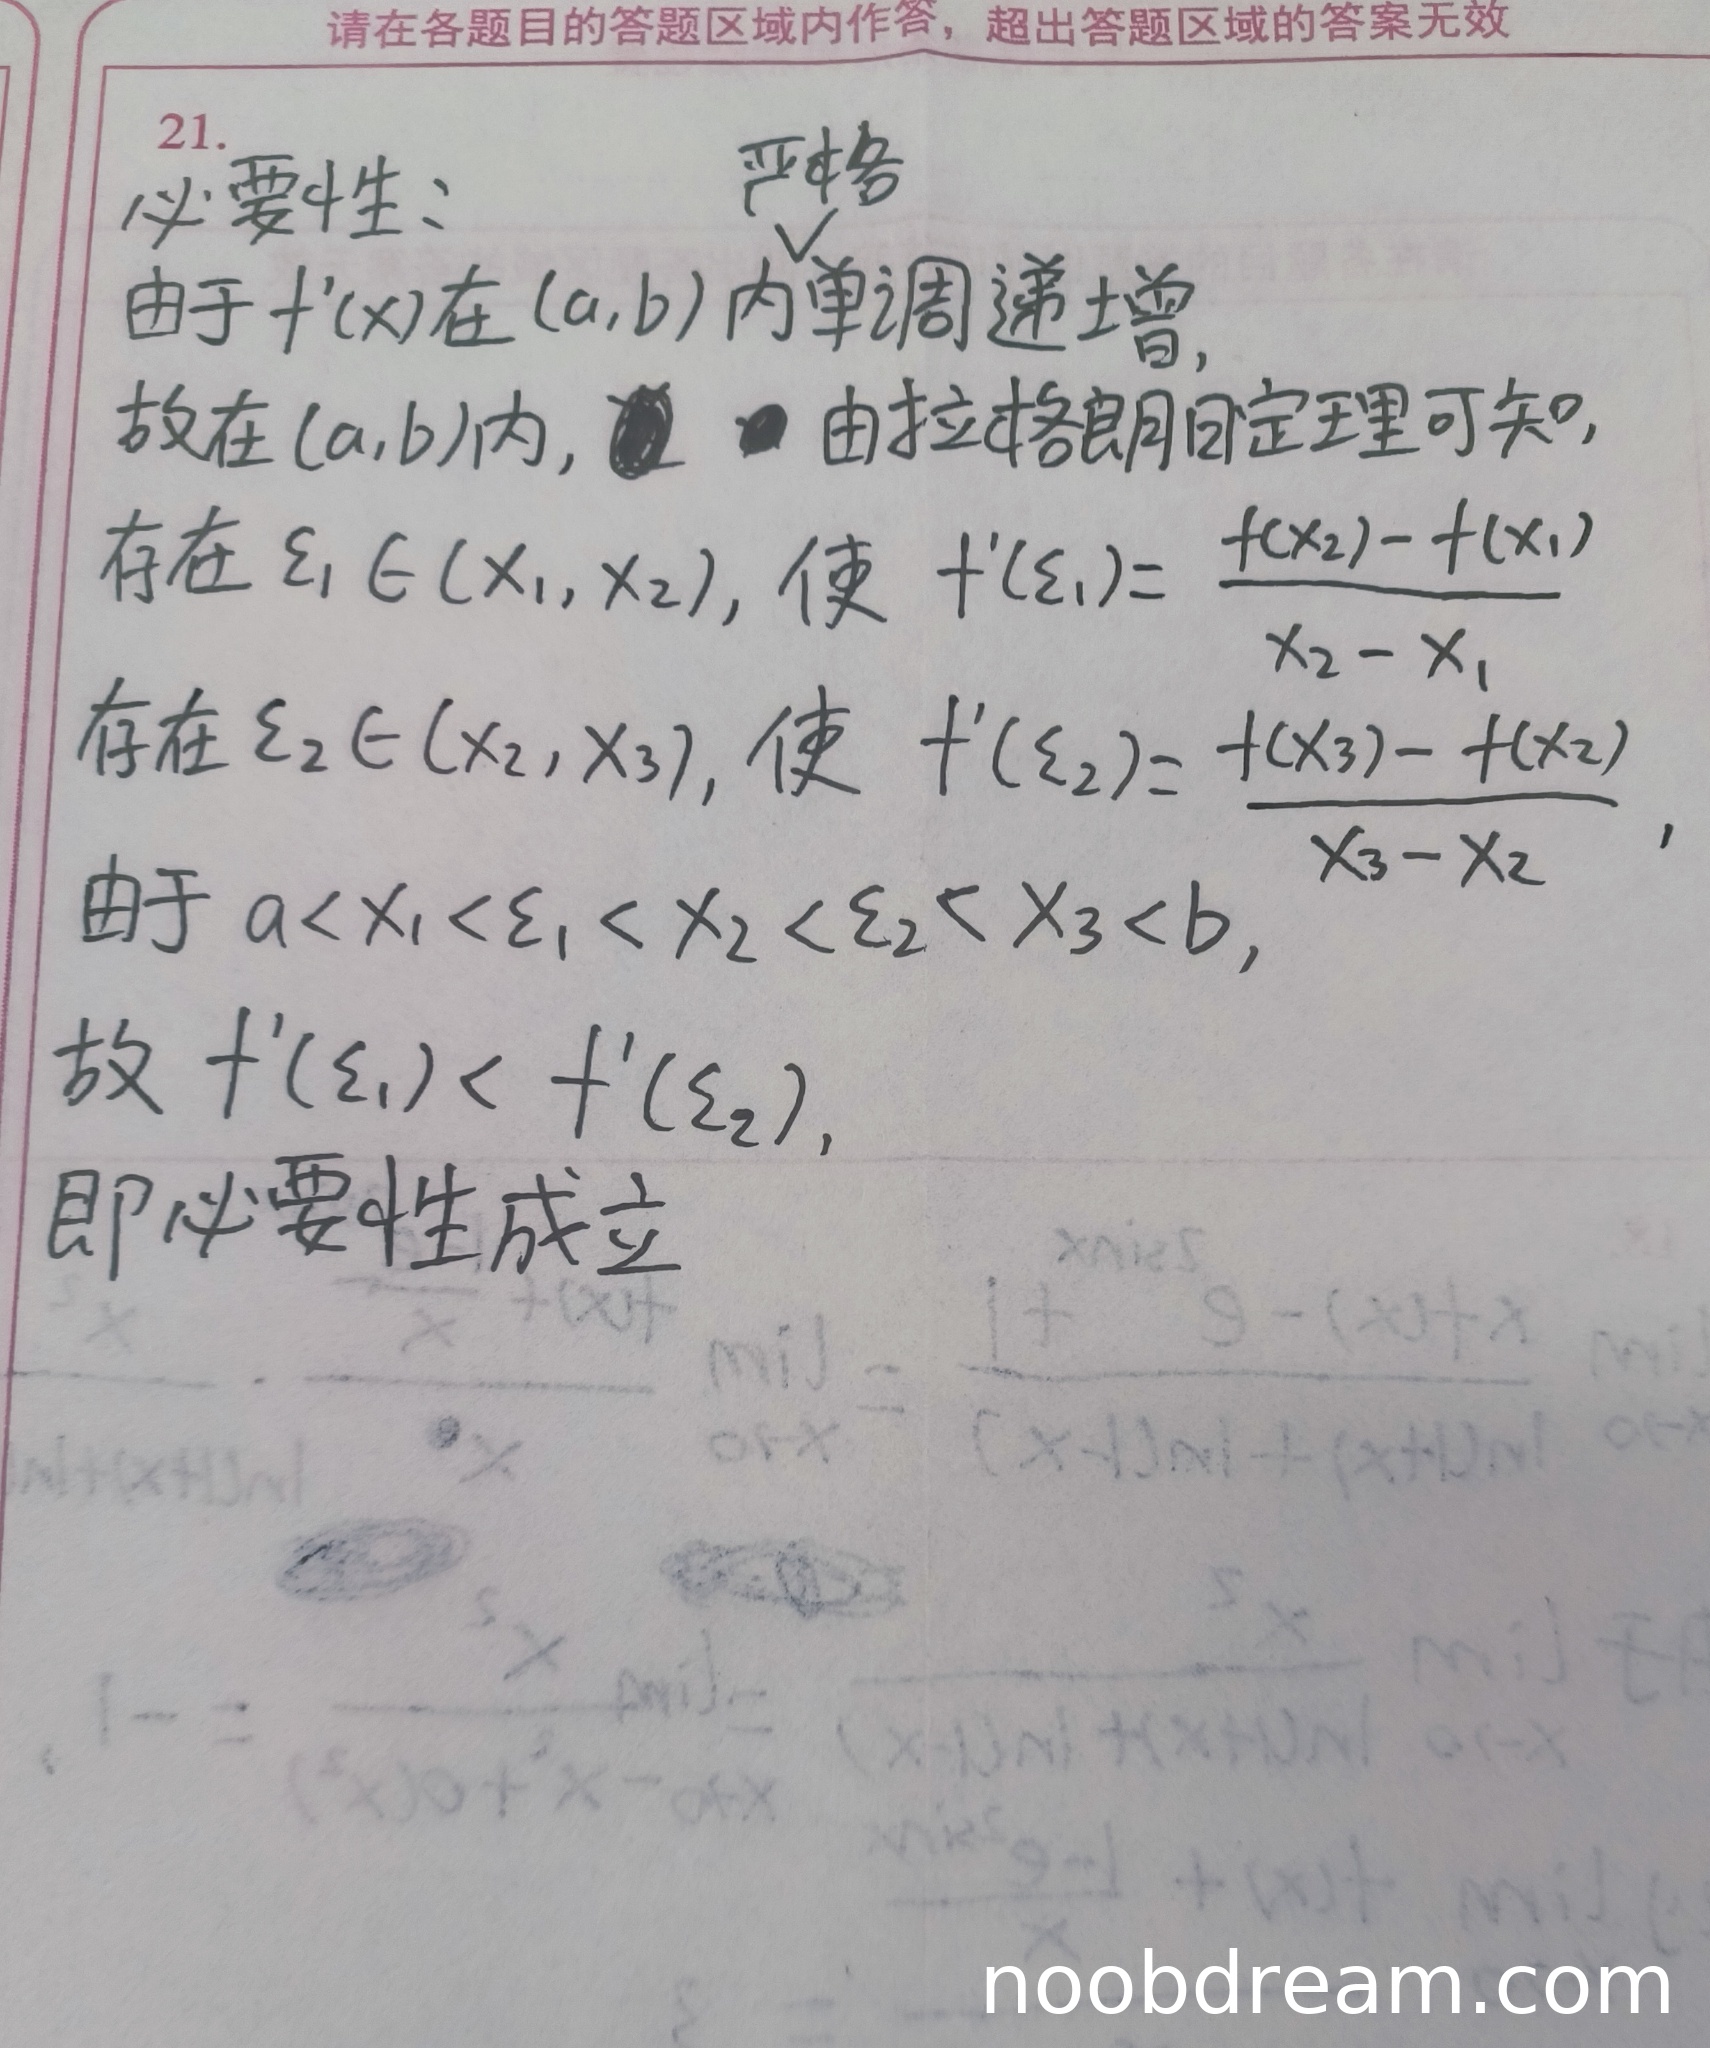 请在各题目的答题区域内作答，超出答题区域的答案无效
21.
必要性：
严格
由于 f'(x) 在 (a,b) 内∨单调递增,
故在 (a,b) 内, 由拉格朗日定理可知,
存在 ξ₁ ∈ (x₁, x₂), 使 f'(ξ₁) = \frac{f(x₂) - f(x₁)}{x₂ - x₁}
存在 ξ₂ ∈ (x₂, x₃), 使 f'(ξ₂) = \frac{f(x₃) - f(x₂)}{x₃ - x₂},
由于 a < x₁ < ξ₁ < x₂ < ξ₂ < x₃ < b,
故 f'(ξ₁) < f'(ξ₂),
即必要性成立
noobdream.com